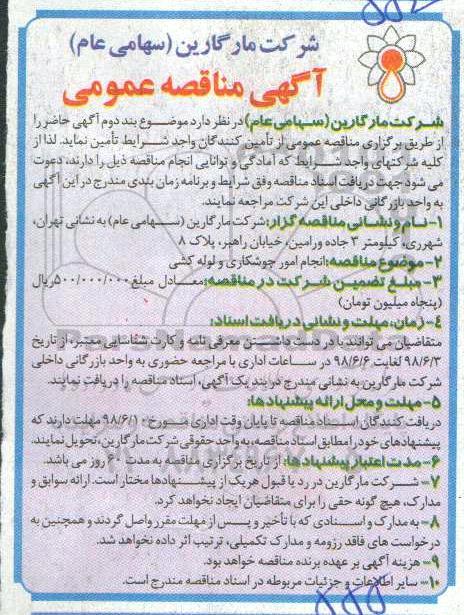 شرکت مارگارین (سهامی عام)
آگهی مناقصه عمومی
شرکت مارگارین (سهامی عام) در نظر دارد موضوع بند دوم آگهی حاضر را
از طریق برگزاری مناقصه عمومی از تأمین کنندگان واجد شرایط تأمین نماید. لذا از
کلیه شرکتهای واجد شرایط که آمادگی و توانایی انجام مناقصه ذیل را دارند، دعوت
می شود جهت دریافت اسناد مناقصه وفق شرایط و برنامه زمان بندی مندرج در این آگهی
به واحد بازرگانی داخلی این شرکت مراجعه نمایند.
۱- نام و نشانی مناقصه گزار: شرکت مارگارین (سهامی عام) به نشانی تهران،
شهرری، کیلومتر ۳ جاده ورامین، خیابان راهبر، پلاک ۸
۲- موضوع مناقصه: انجام امور جوشکاری و لوله کشی
۳- مبلغ تضمین شرکت در مناقصه: معادل مبلغ ۵۰۰/۰۰۰/۰۰۰ ریال
(پنجاه میلیون تومان)
۴- زمان، مهلت و نشانی دریافت اسناد:
متقاضیان می توانند با در دست داشتن معرفی نامه و کارت شناسایی معتبر، از تاریخ
۹۸/۶/۳ لغایت ۹۸/۶/۶ در ساعات اداری با مراجعه حضوری به واحد بازرگانی داخلی
شرکت مارگارین به نشانی مندرج در بند یک آگهی، اسناد مناقصه را دریافت نمایند.
۵- مهلت و محل ارائه پیشنهادها:
دریافت کنندگان اسناد مناقصه تا پایان وقت اداری مورخ ۹۸/۶/۱۰ مهلت دارند که
پیشنهادهای خود را مطابق اسناد مناقصه، به واحد حقوقی شرکت مارگارین، تحویل نمایند.
۶- مدت اعتبار پیشنهادها: از تاریخ برگزاری مناقصه به مدت ۶۰ روز می باشد.
۷- شرکت مارگارین در رد یا قبول هریک از پیشنهادها مختار است. ارائه سوابق و
مدارک، هیچ گونه حقی را برای متقاضیان ایجاد نخواهد کرد.
۸- به مدارک و اسنادی که با تأخیر و پس از مهلت مقرر واصل گردند و همچنین به
درخواست های فاقد رزومه و مدارک تکمیلی، ترتیب اثر داده نخواهد شد.
۹- هزینه آگهی بر عهده برنده مناقصه خواهد بود.
۱۰- سایر اطلاعات و جزئیات مربوطه در اسناد مناقصه مندرج است.